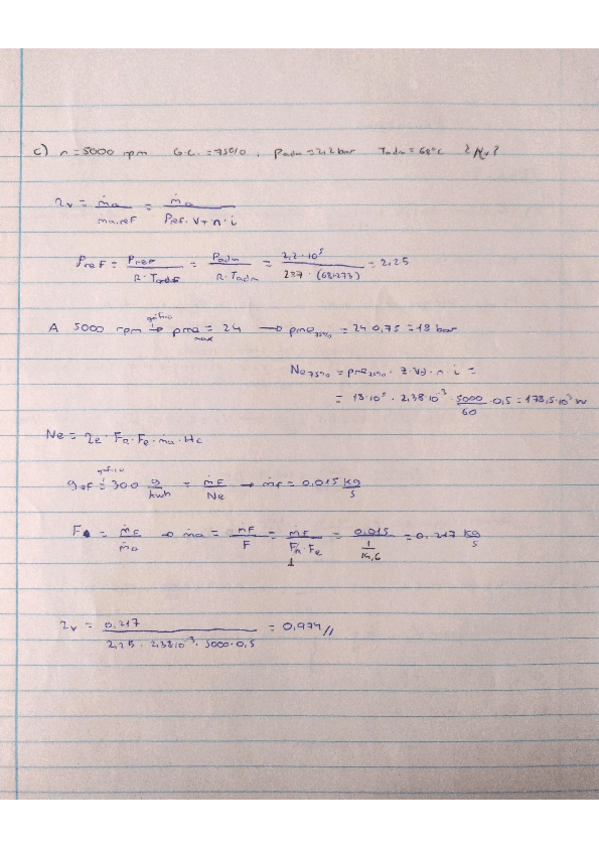 c) n = 5000 rpm G.C. = 75% . Padm = 2,2 bar Tadm = 68ºC ¿ηv?
ηv = ṁa / ma,ref = ṁa / Pref · VT · n · i
Pref = Pref / R · Tadm = Padm / R · Tadm = 2,2 · 10⁵ / 287 · (68+273) = 2,25
gráfico
A 5000 rpm → pme max = 24 → pme75% = 24 · 0,75 = 18 bar
Ne75% = pme75% · z · Vd · n · i =
= 18 · 10⁵ · 2,38 · 10⁻³ · 5000/60 · 0,5 = 178,5 · 10³ W
Ne = ηe · FR · Fe · ṁa · Hc
gráfico
gef = 300 g/kWh = ṁF / Ne → ṁf = 0,015 kg/s
F = ṁF / ṁa → ṁa = ṁF / F = ṁF / FR · Fe = 0,015 / 1/14,6 = 0,217 kg/s
1
ηv = 0,217 / 2,25 · 2,38·10⁻³ · 5000 · 0,5 = 0,974 //